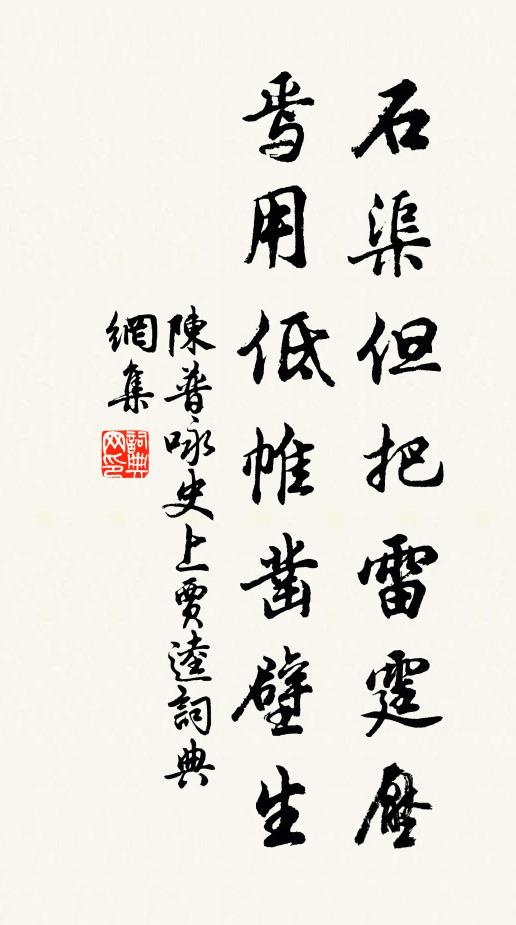 石渠但把雷霆壓
焉用低帷凿壁生
陳普咏史上賈逵詞典
網集
詞典
网印